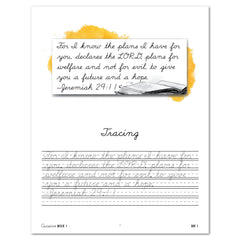 For I know the plans I have for
you, declares the LORD, plans for
welfare and not for evil, to give
you a future and a hope.
-Jeremiah 29:11
Tracing
For I know the plans I have for
you, declares the LORD, plans for
welfare and not for evil, to give
you a future and a hope.
-Jeremiah 29:11
WEEK 1
DAY 1